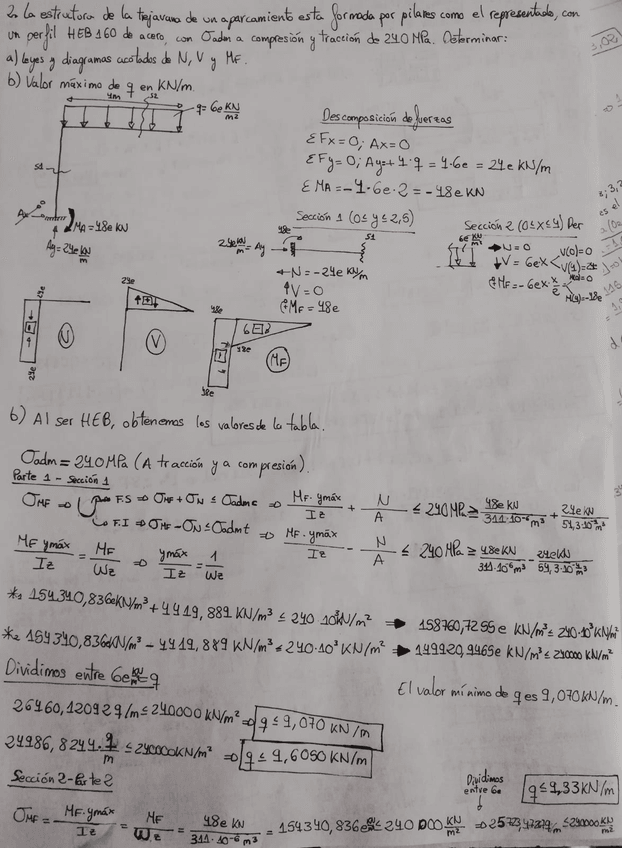 2. La estructura de la trejavana de un aparcamiento esta formada por pilares como el representado, con
un perfil HEB 160 de acero, con σadm a compresión y tracción de 240 MPa. Determinar:
a) Leyes y diagramas acotados de N, V y MF.
b) Valor máximo de q en KN/m.
4m
S2
q=6e KN/m²
S1
Ax
MA=48e KN
Ay=24e KN/m
Descomposición de fuerzas
ΣFx=0; Ax=0
ΣFy=0; Ay=+4·q = 4·6e = 24e KN/m
ΣMA=-4·6e·2 = -48e KN
Sección 1 (0≤y≤2,5)
48e
24e KN/m = Ay
S1
←N = -24e KN/m
↑V = 0
MF = 48e
Sección 2 (0≤x≤4) Der
6e KN/m²
→N=0
↓V = 6ex
V(0)=0
V(4)=24e
MF=-6ex·x/2
M(4)=-48e
24e
24e
N
24e
V
48e
48e
48e
MF
b) Al ser HEB, obtenemos los valores de la tabla.
σadm = 240 MPa (A tracción y a compresión).
Parte 1 - Sección 1
σMF ⇒ F.S ⇒ σMF + σN ≤ σadm c ⇒ MF·ymáx/Iz + N/A ≤ 240 MPa ≥ 48e KN/311·10⁻⁶m³ + 24e KN/54,3·10⁻⁴m³
F.I ⇒ σMF - σN ≤ σadm t ⇒ MF·ymáx/Iz - N/A ≤ 240 MPa ≥ 48e KN/311·10⁻⁶m³ - 24e KN/54,3·10⁻⁴m³
MF ymáx/Iz = MF/Wz ⇒ ymáx/Iz = 1/Wz
*₁ 154340,836e KN/m³ + 4419,889 KN/m³ ≤ 240·10³ KN/m² → 158760,7255e KN/m³ ≤ 240·10³ KN/m²
*₂ 154340,836e KN/m³ - 4419,889 KN/m³ ≤ 240·10³ KN/m² → 149920,9465e KN/m³ ≤ 240000 KN/m²
Dividimos entre 6e KN/m = q
El valor mínimo de q es 9,070 KN/m.
26460,12092 q/m ≤ 240000 KN/m² ⇒ q ≤ 9,070 KN/m
24986,8244·q/m ≤ 240000 KN/m² ⇒ q ≤ 9,6050 KN/m
Sección 2 - Parte 2
Dividimos
entre 6e
q ≤ 9,33 KN/m
σMF = MF·ymáx/Iz = MF/Wz = 48e KN/311·10⁻⁶m³ = 154340,836e ≤ 240000 KN/m² ⇒ ≤ 240000 KN/m²